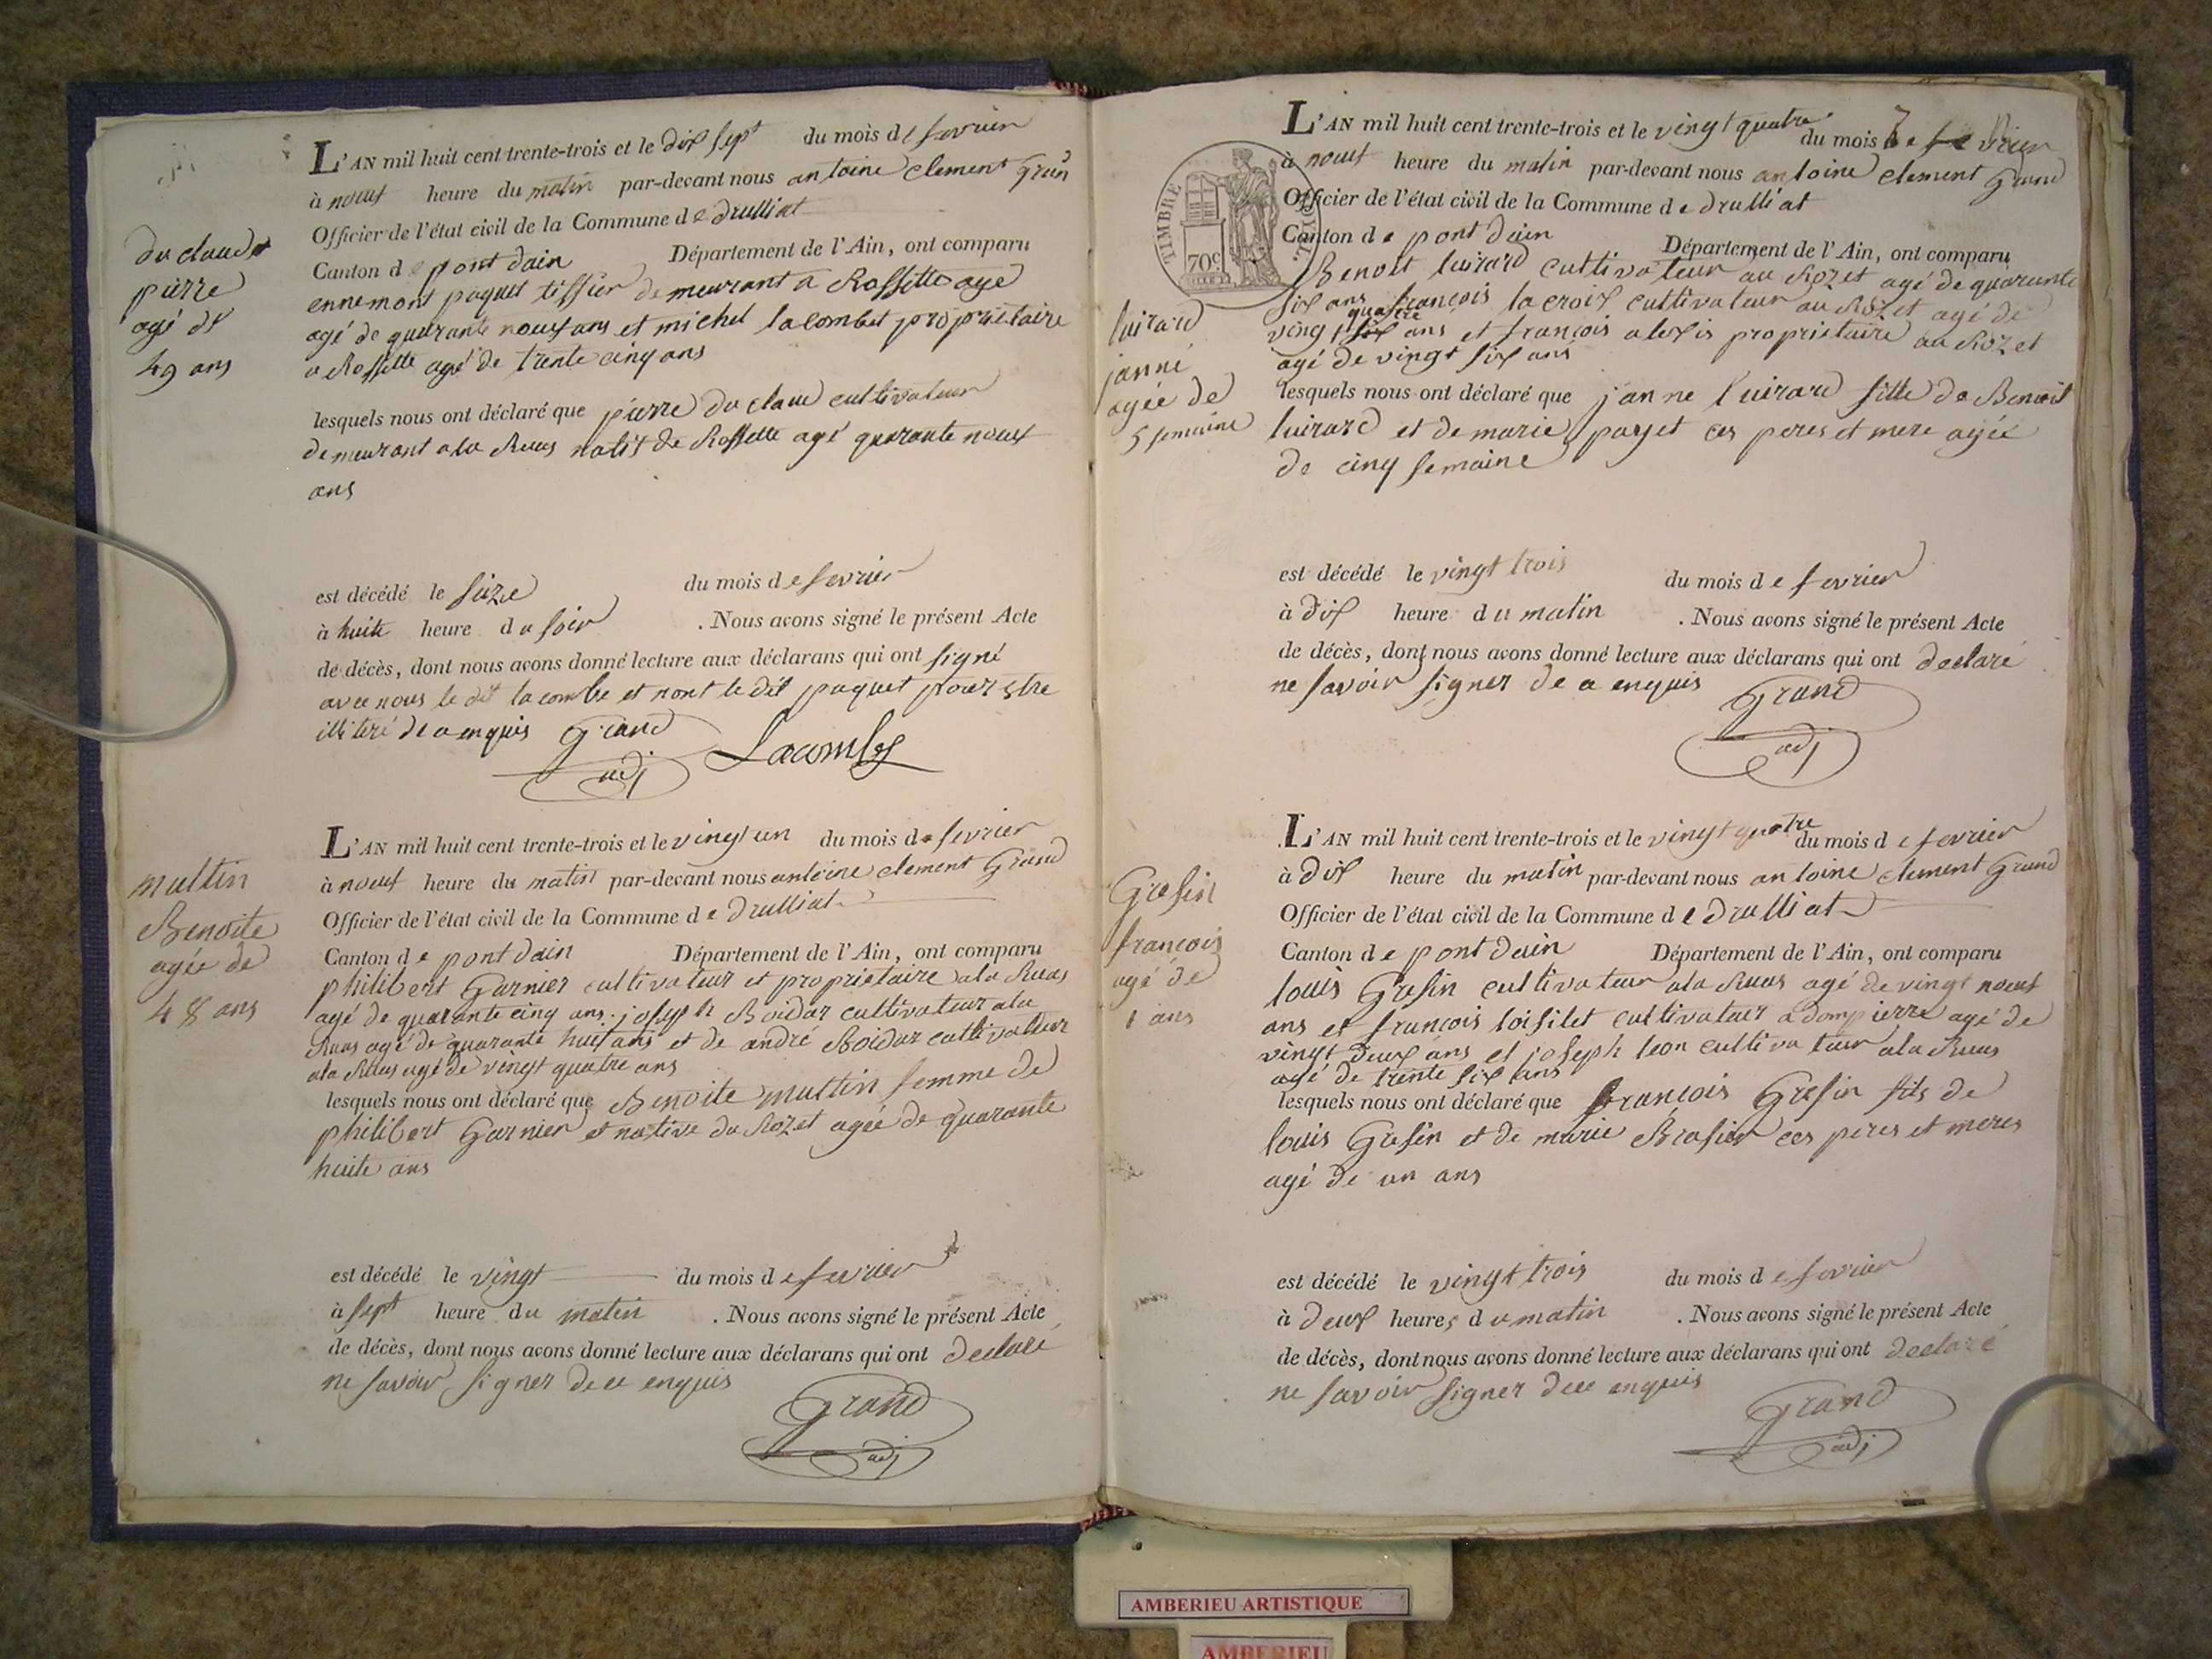 du claude
pierre
agé de
49 ans
L'AN mil huit cent trente-trois et le dix sept du mois de fevrier
à neuf heure du matin par-devant nous antoine clement Grand
Officier de l'état civil de la Commune de druilliat
Canton de pont dain Département de l'Ain, ont comparu
ennemont paquet tissier demeurant a Rossette agé
agé de quarante neuf ans et michel lacombet proprietaire
a Rossette agé de trente cinq ans
lesquels nous ont déclaré que pierre du claud cultivateur
demeurant a la Ruas natif de Rossette agé quarante neuf
ans
est décédé le seize du mois de fevrier
à huite heure du soir . Nous avons signé le présent Acte
de décès, dont nous avons donné lecture aux déclarans qui ont signé
avec nous le dit lacombe et nont le dit paquet pour etre
illiteré de a enquis Grand
adj Lacombe
multin
Benoite
agée de
48 ans
L'AN mil huit cent trente-trois et le vingt un du mois de fevrier
à neuf heure du matin par-devant nous antoine clement Grand
Officier de l'état civil de la Commune de druilliat
Canton de pont dain Département de l'Ain, ont comparu
philibert Garnier cultivateur et proprietaire a la Ruas
agé de quarante cinq ans joseph Boidar cultivateur a la
Ruas agé de quarante huit ans et de andré Boidar cultivateur
a la Ruas agé de vingt quatre ans
lesquels nous ont déclaré que Benoite multin femme de
philibert Garnier et native du Rozet agée de quarante
huite ans
est décédé le vingt du mois de fevrier
à sept heure du matin . Nous avons signé le présent Acte
de décès, dont nous avons donné lecture aux déclarans qui ont declaré
ne savoir signer de ce enquis
Grand
adj
TIMBRE
70c
luirard
janne
agée de
5 semaine
L'AN mil huit cent trente-trois et le vingt quatre du mois de fevrier
à neuf heure du matin par-devant nous antoine clement Grand
Officier de l'état civil de la Commune de druilliat
Canton de pont dain Département de l'Ain, ont comparu
Benoit luirard cultivateur au Rozet agé de quarante
six ans françois lacroix cultivateur au Rozet agé de
quatre
vingt six ans et françois alexis proprietaire au Rozet
agé de vingt six ans
lesquels nous ont déclaré que janne luirard fille de Benoit
luirard et de marie payet ces peres et mere agée
de cinq semaine
est décédé le vingt trois du mois de fevrier
à dix heure du matin . Nous avons signé le présent Acte
de décès, dont nous avons donné lecture aux déclarans qui ont declaré
ne savoir signer de a enquis Grand
adj
Grosin
françois
agé de
1 ans
L'AN mil huit cent trente-trois et le vingt quatre du mois de fevrier
à dix heure du matin par-devant nous antoine clement Grand
Officier de l'état civil de la Commune de druilliat
Canton de pont dain Département de l'Ain, ont comparu
louis Grosin cultivateur a la Ruas agé de vingt neuf
ans et françois loisilet cultivateur a dompierre agé de
vingt deux ans et joseph leon cultivateur a la Ruas
agé de trente six ans
lesquels nous ont déclaré que françois Grosin fils de
louis Grosin et de marie Brosier ces peres et meres
agé de un ans
est décédé le vingt trois du mois de fevrier
à deux heures du matin . Nous avons signé le présent Acte
de décès, dont nous avons donné lecture aux déclarans qui ont declaré
ne savoir signer de ce enquis
Grand
adj
AMBERIEU ARTISTIQUE
AMBERIEU